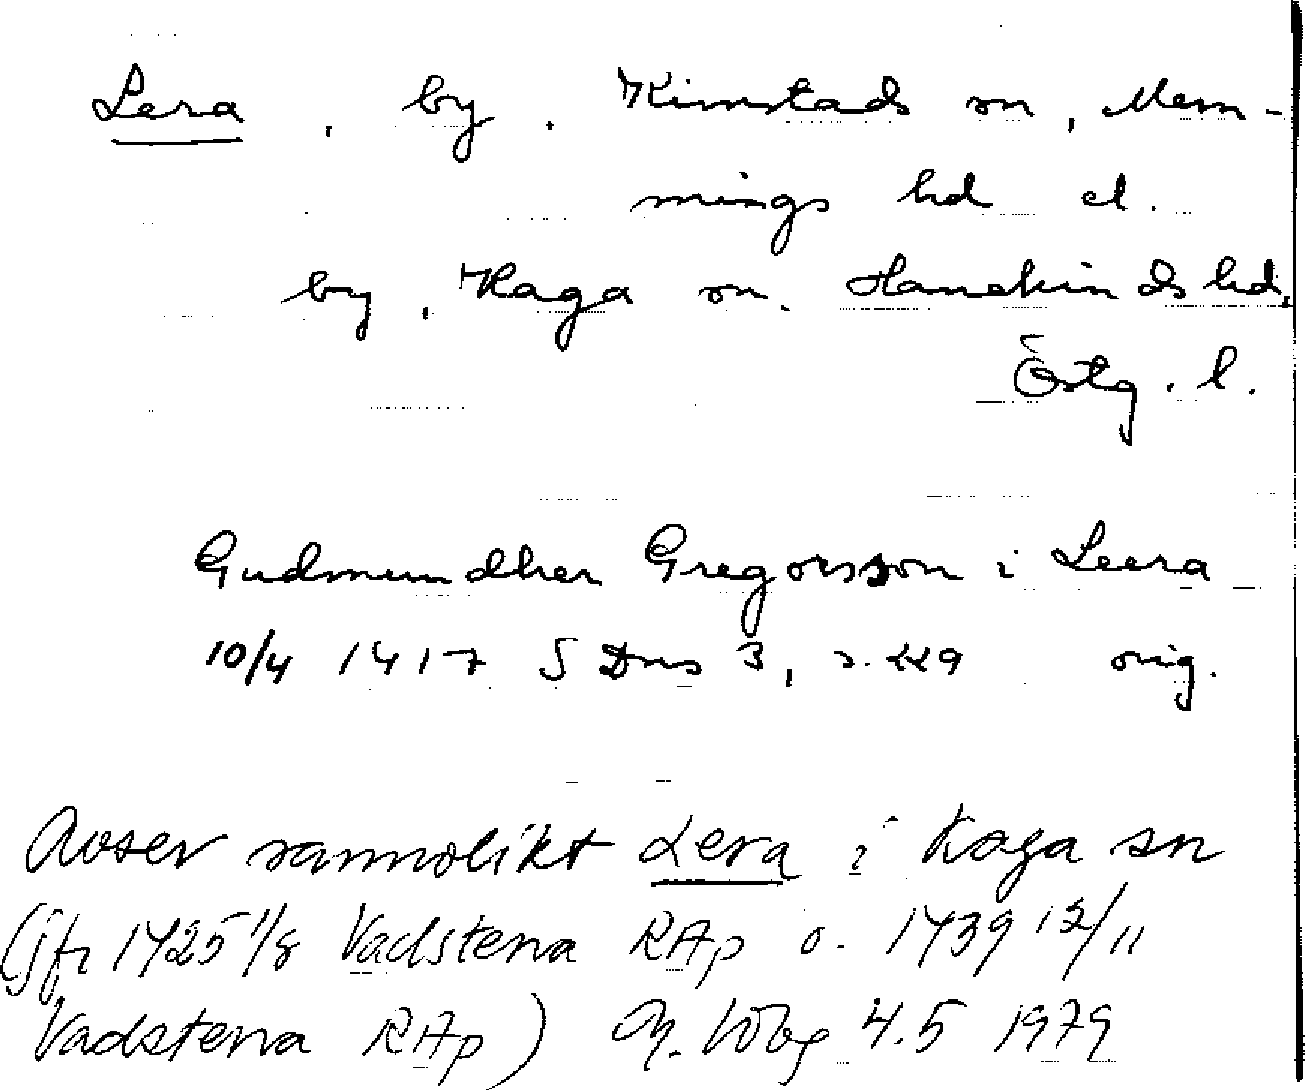 Lera, by, Kimstads sn, Mem-
mings hd el.
by, Kaga sn. Hanekinds hd,
Östg. l.
Gudmundher Gregorsson i Leera
10/4 1417 SDns 3, s. 229 orig.
Avser sannolikt Lera i Kaga sn
(jfr 1425 11/8 Vadstena RAp o. 1439 12/11
Vadstena RAp) 4.5 1979